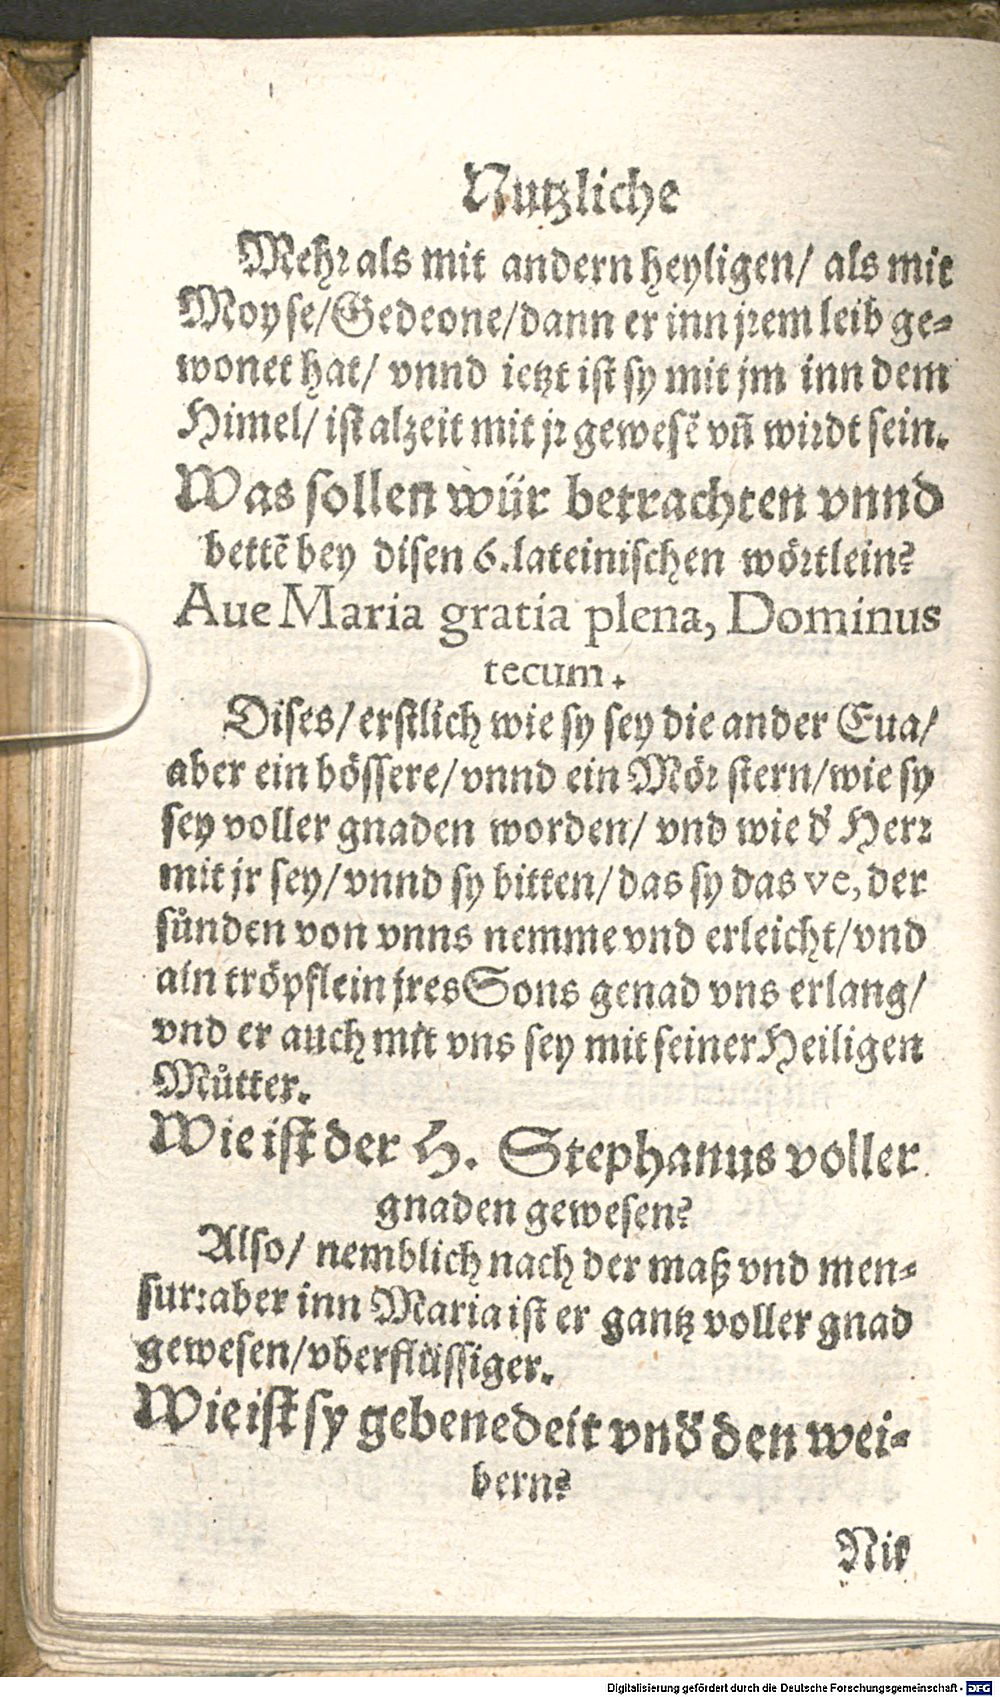 Nutzliche
Mehr als mit andern heyligen/ als mit
Moyse/Gedeone/dann er inn jrem leib ge-
wonet hat/ vnnd ietzt ist sy mit jm inn dem
Himel/ ist alzeit mit jr gewesẽ vñ wirdt sein.
Was sollen wür betrachten vnnd
bettẽ bey disen 6.lateinischen wörtlein?
Aue Maria gratia plena, Dominus
tecum.
Dises/ erstlich wie sy sey die ander Eua/
aber ein bössere/vnnd ein Mör stern/wie sy
sey voller gnaden worden/ vnd wie d' Herr
mit jr sey/vnnd sy bitten/das sy das ve, der
sůnden von vnns nemme vnd erleicht/vnd
ain tröpflein jres Sons genad vns erlang/
vnd er auch mit vns sey mit seiner Heiligen
Můtter.
Wie ist der H. Stephanus voller
gnaden gewesen?
Also/ nemblich nach der maß vnd men-
sur:aber inn Maria ist er gantz voller gnad
gewesen/vberflüssiger.
Wie ist sy gebenedeit vnd' den wei-
bern?
Nit
Digitalisierung gefördert durch die Deutsche Forschungsgemeinschaft - DFG